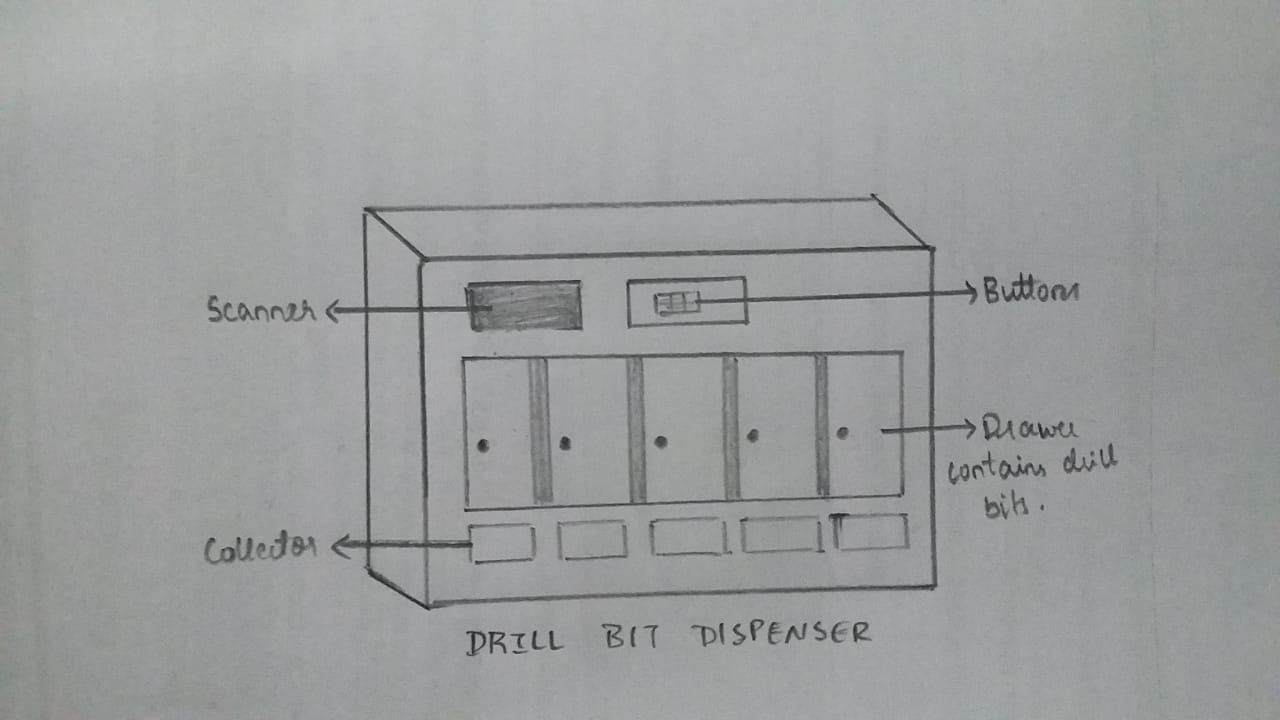 Scanner
Buttons
Drawer
contains drill
bits.
Collector
DRILL BIT DISPENSER